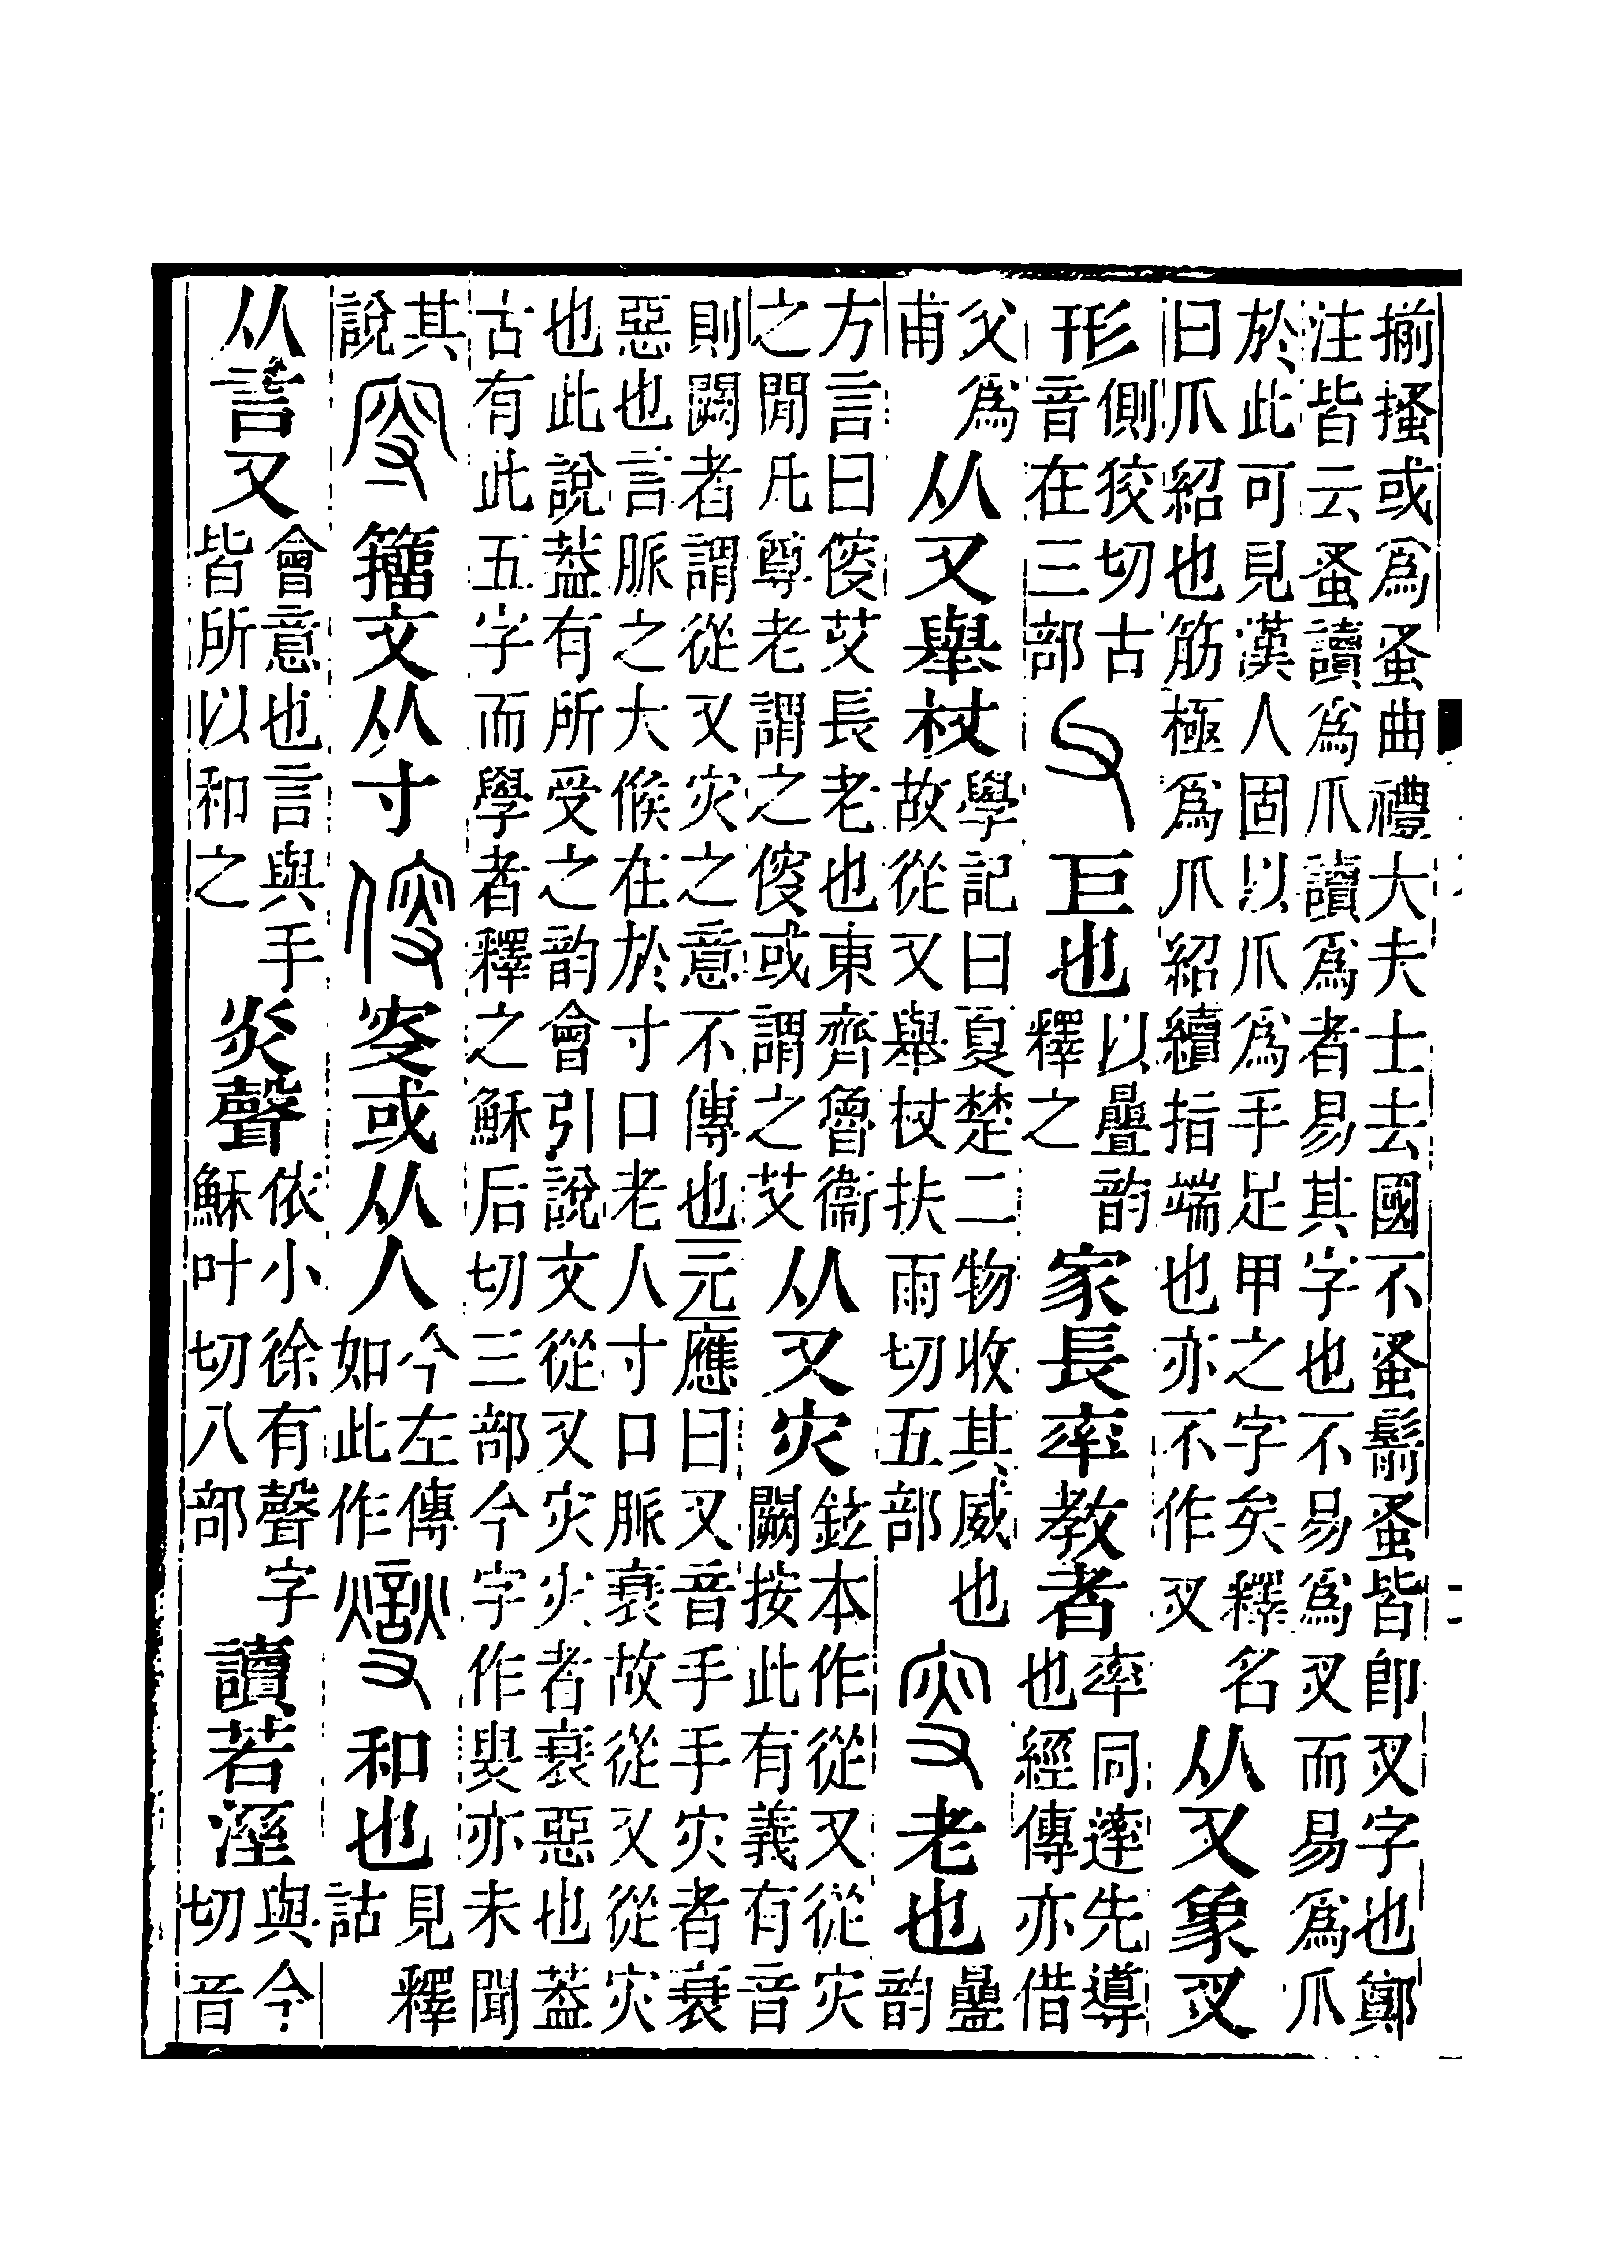 揃搔或爲蚤曲禮大夫士去國不蚤鬋蚤皆卽叉字也鄭
注皆云蚤讀爲爪讀爲者易其字也不易爲叉而易爲爪
於此可見漢人固以爪爲手足甲之字矣釋名
曰爪紹也筋極爲爪紹續指端也亦不作叉
从又象叉
形側狡切古音在三部
父巨也以疊韵釋之家長率教者率同䢦先導也經傳亦借
父爲甫从又舉杖學記曰夏楚二物收其威也故從又舉杖扶雨切五部
叜老也疊韵
方言曰傁艾長老也東齊魯衞
之閒凡尊老謂之傁或謂之艾
从又灾鉉本作從又從灾闕按此有義有音
則闕者謂從又灾之意不傳也元應曰又音手手灾者衰
惡也言脈之大候在於寸口老人寸口脈衰故從又從灾
也此說葢有所受之韵會引說文從又灾灾者衰惡也葢
古有此五字而學者釋之穌后切三部今字作叟亦未聞
其說
𡨥籒文从寸
傁叜或从人今左傳如此作
燮和也見釋詁
从言又會意也言與手皆所以和之炎聲依小徐有聲字穌叶切八部讀若溼與今切音